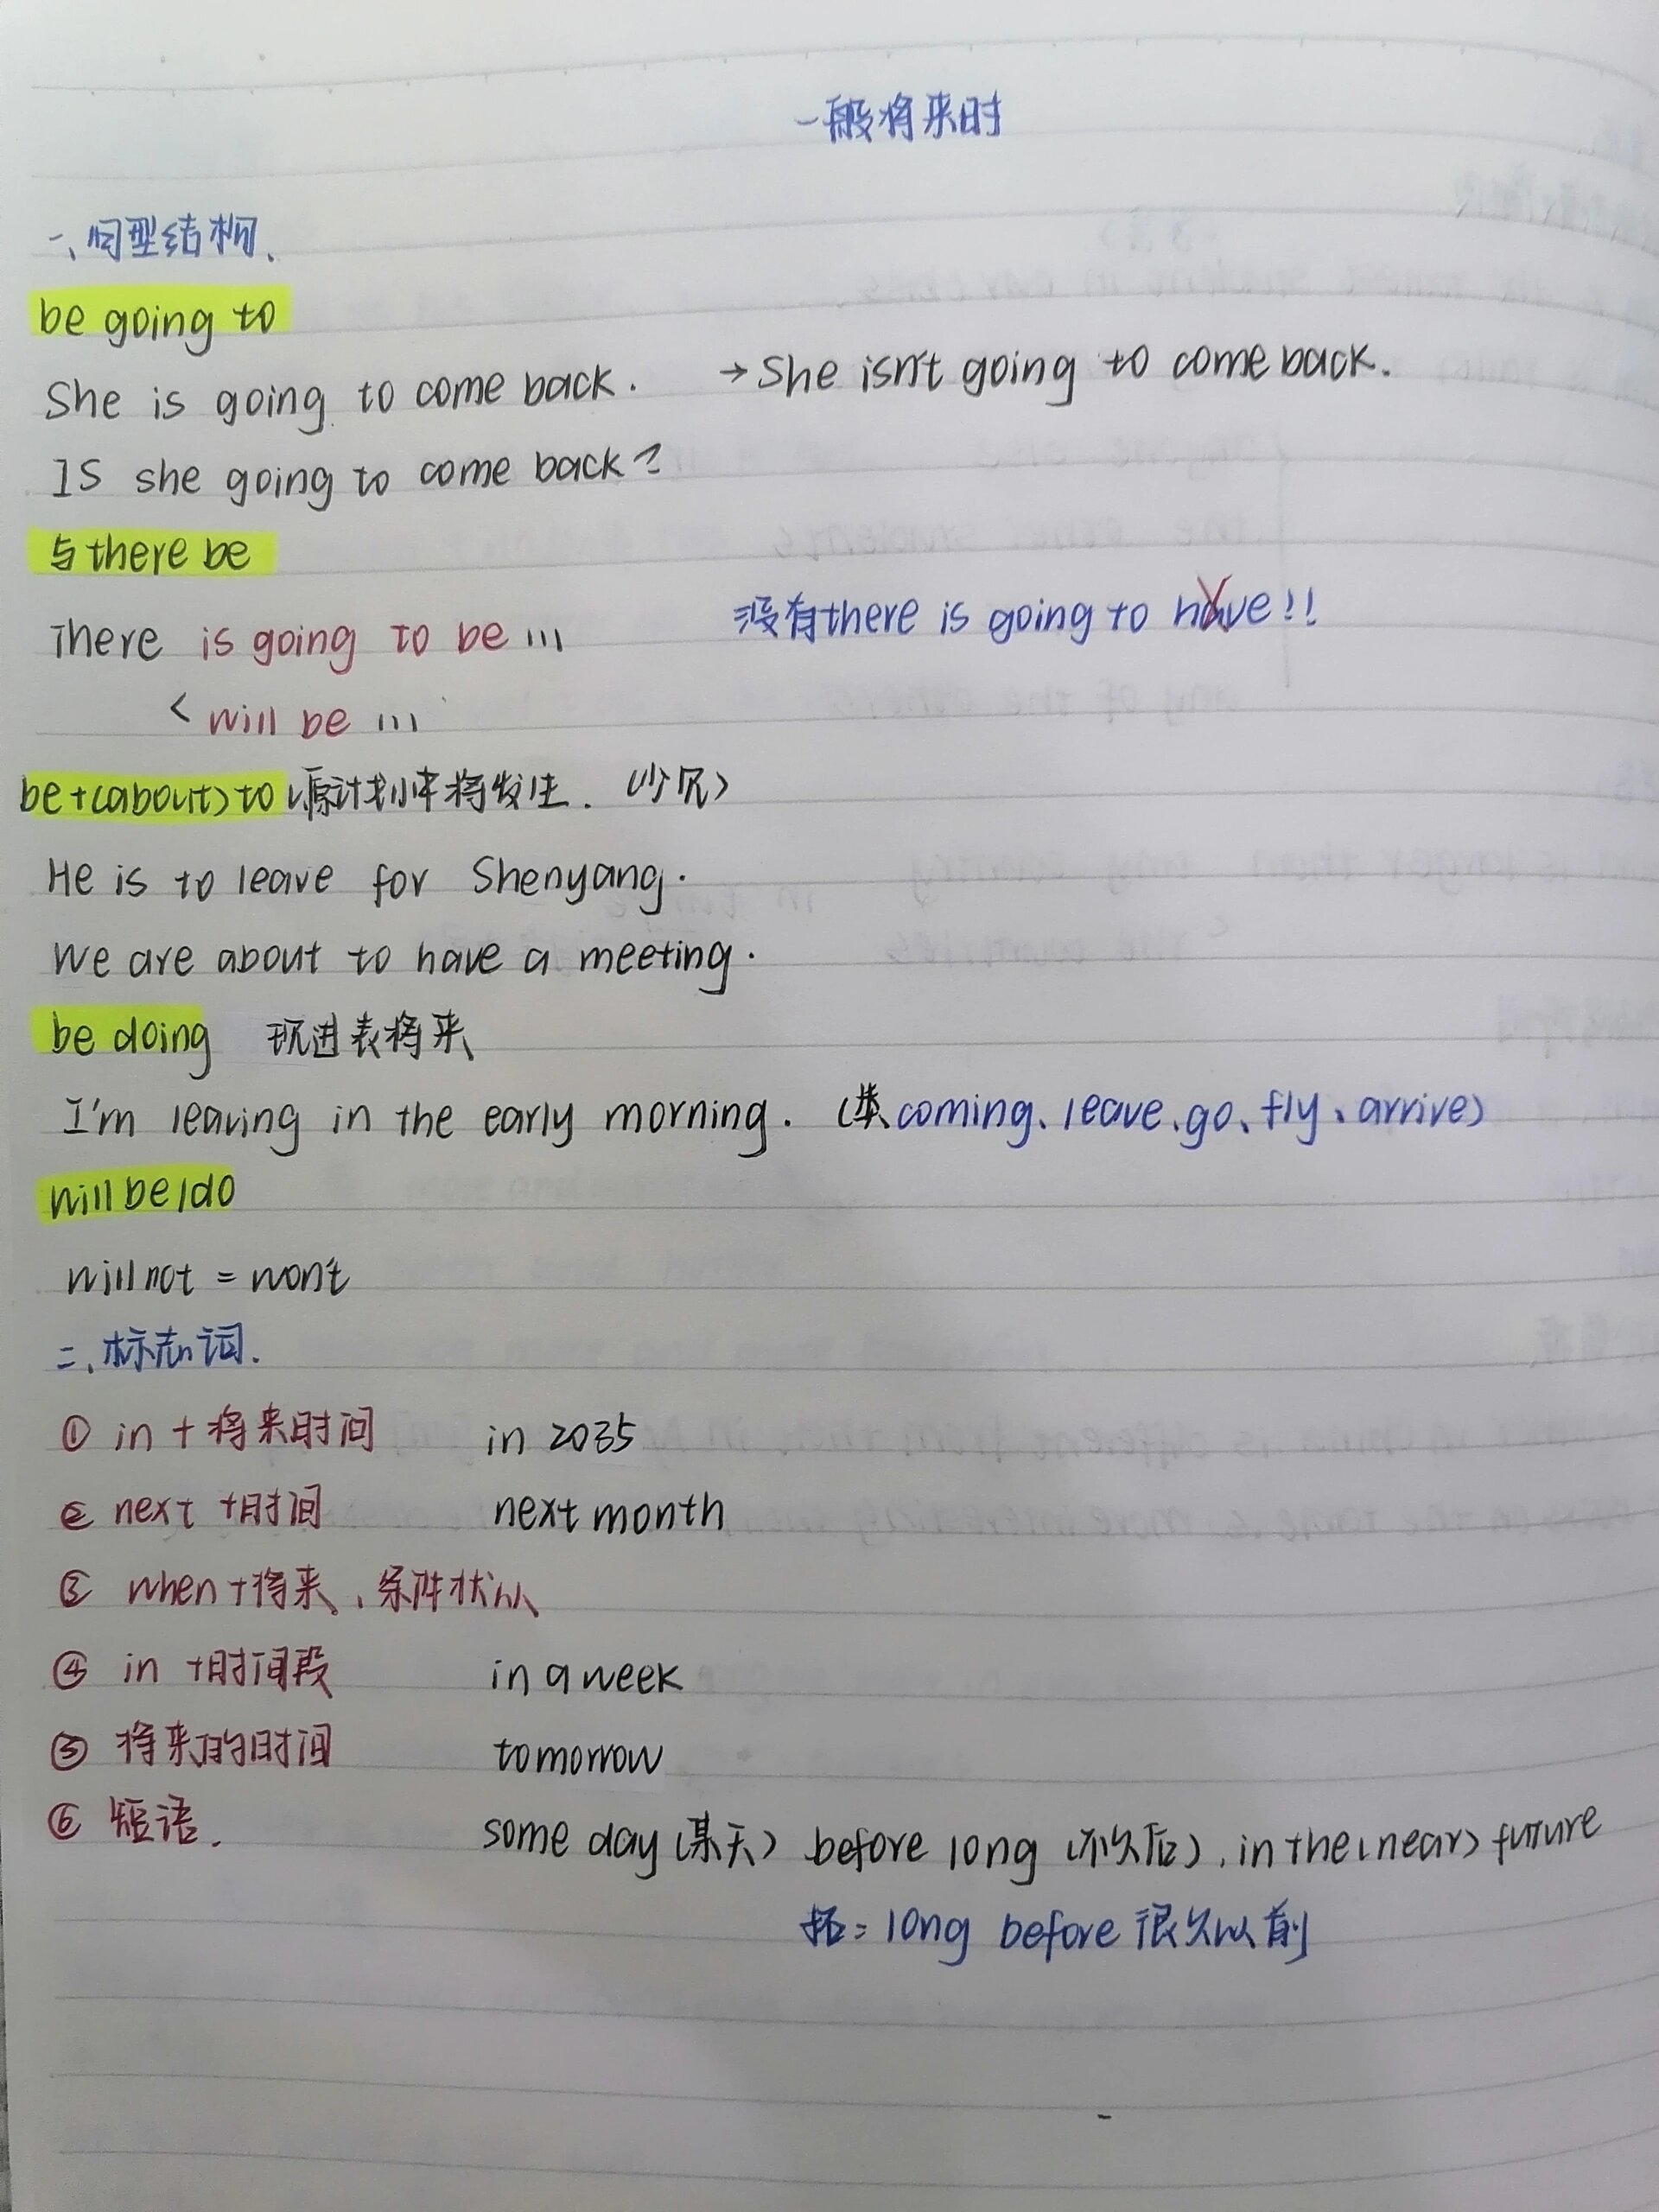 一般将来时
一、句型结构、
be going to
She is going to come back. →She isn't going to come back.
IS she going to come back?
与there be
There is going to be ... 没有there is going to have!!
< will be ...
be+(about) to (原计划中将发生. (少见)
He is to leave for Shenyang.
We are about to have a meeting.
be doing 现进表将来
I'm leaving in the early morning. (类coming、leave、go、fly、arrive)
will be/do
will not = won't
二、标志词.
① in + 将来时间 in 2035
② next +时间 next month
③ when+将来、条件状从
④ in +时间段 in a week
⑤ 将来的时间 tomorrow
⑥ 短语. some day (某天) before long (不久后), in the (near) future
拓: long before 很久以前